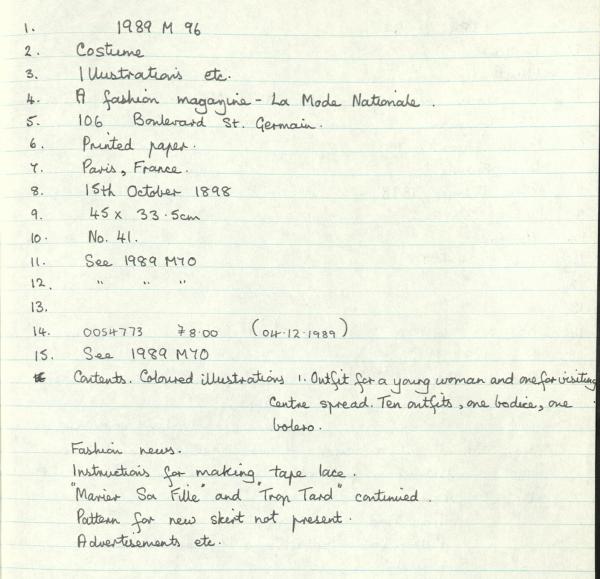 1. 1989 M 96
2. Costume
3. Illustrations etc.
4. A fashion magazine - La Mode Nationale.
5. 106 Boulevard St. Germain.
6. Printed paper.
7. Paris, France.
8. 15th October 1898
9. 45 x 33.5cm
10. No. 41.
11. See 1989 M70
12. " " "
13.
14. 0054773 £8.00 (04.12.1989)
15. See 1989 M70
Contents. Coloured illustrations 1. Outfit for a young woman and one for visiting
Centre spread. Ten outfits, one bodice, one
bolero.
Fashion news.
Instructions for making tape lace.
"Marier Sa Fille" and "Trop Tard" continued.
Pattern for new skirt not present.
Advertisements etc.